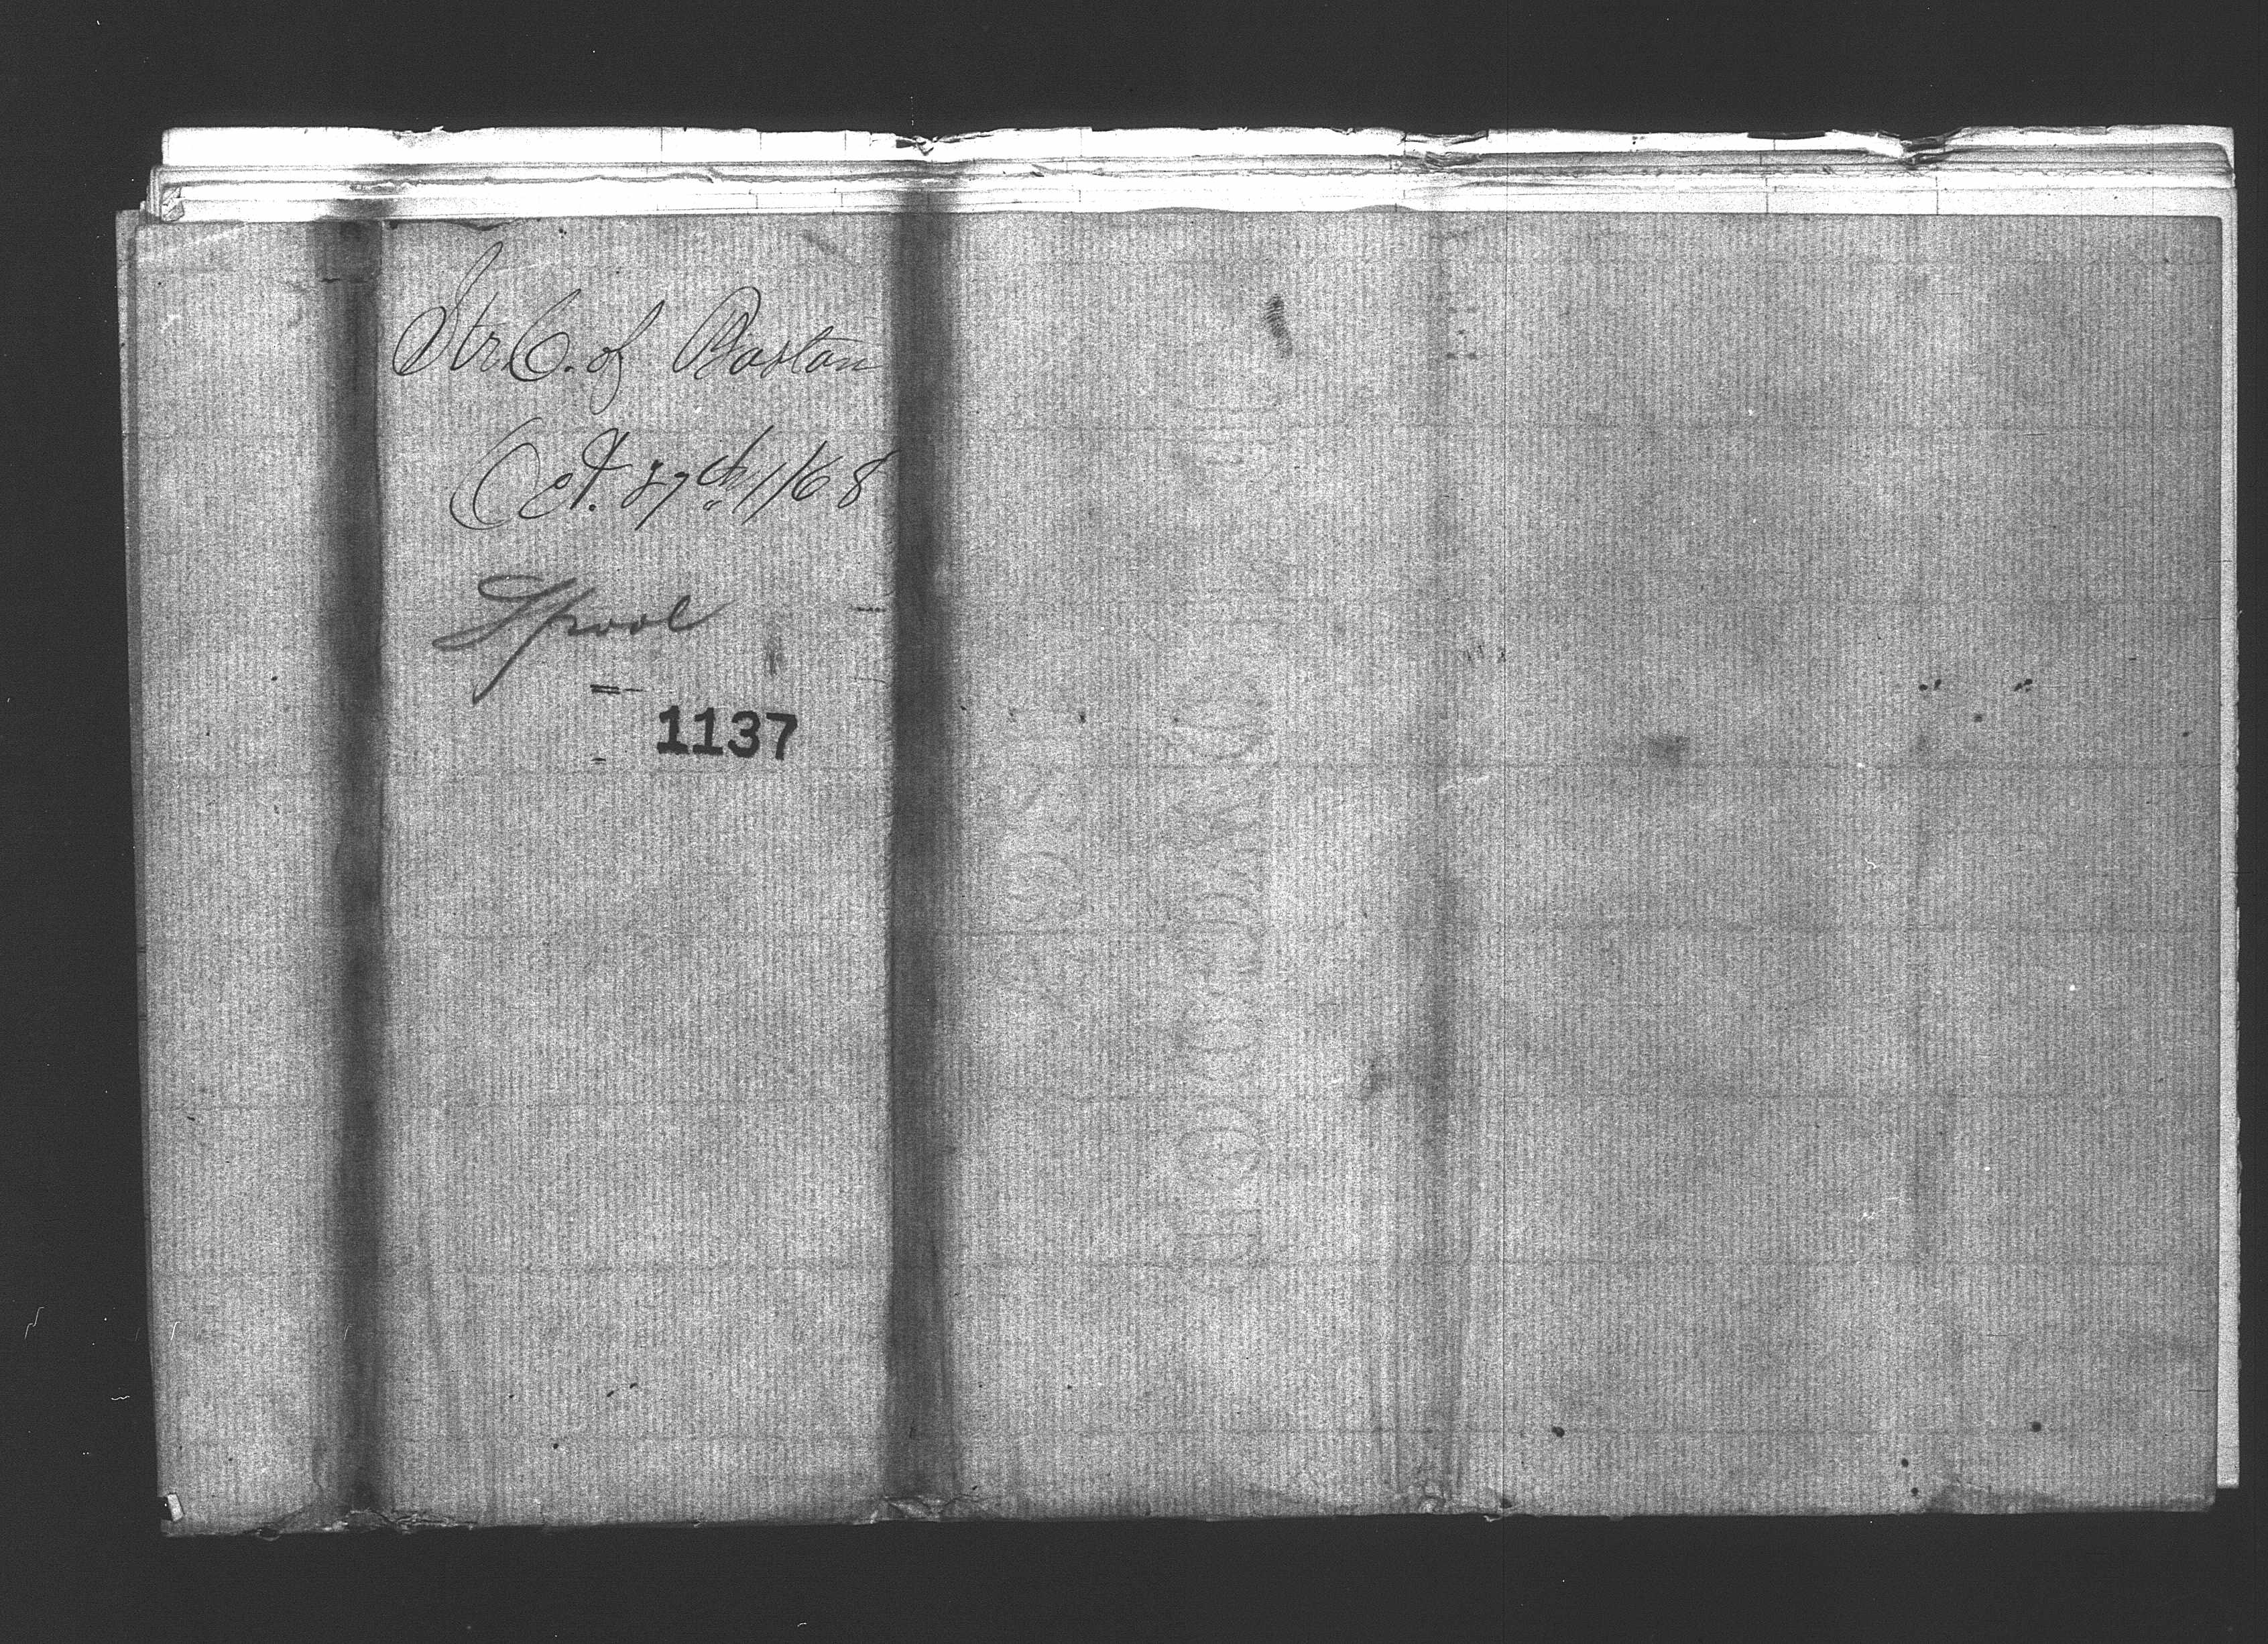 Str. C. of Boston
Oct. 27th / 68
Lpool
1137